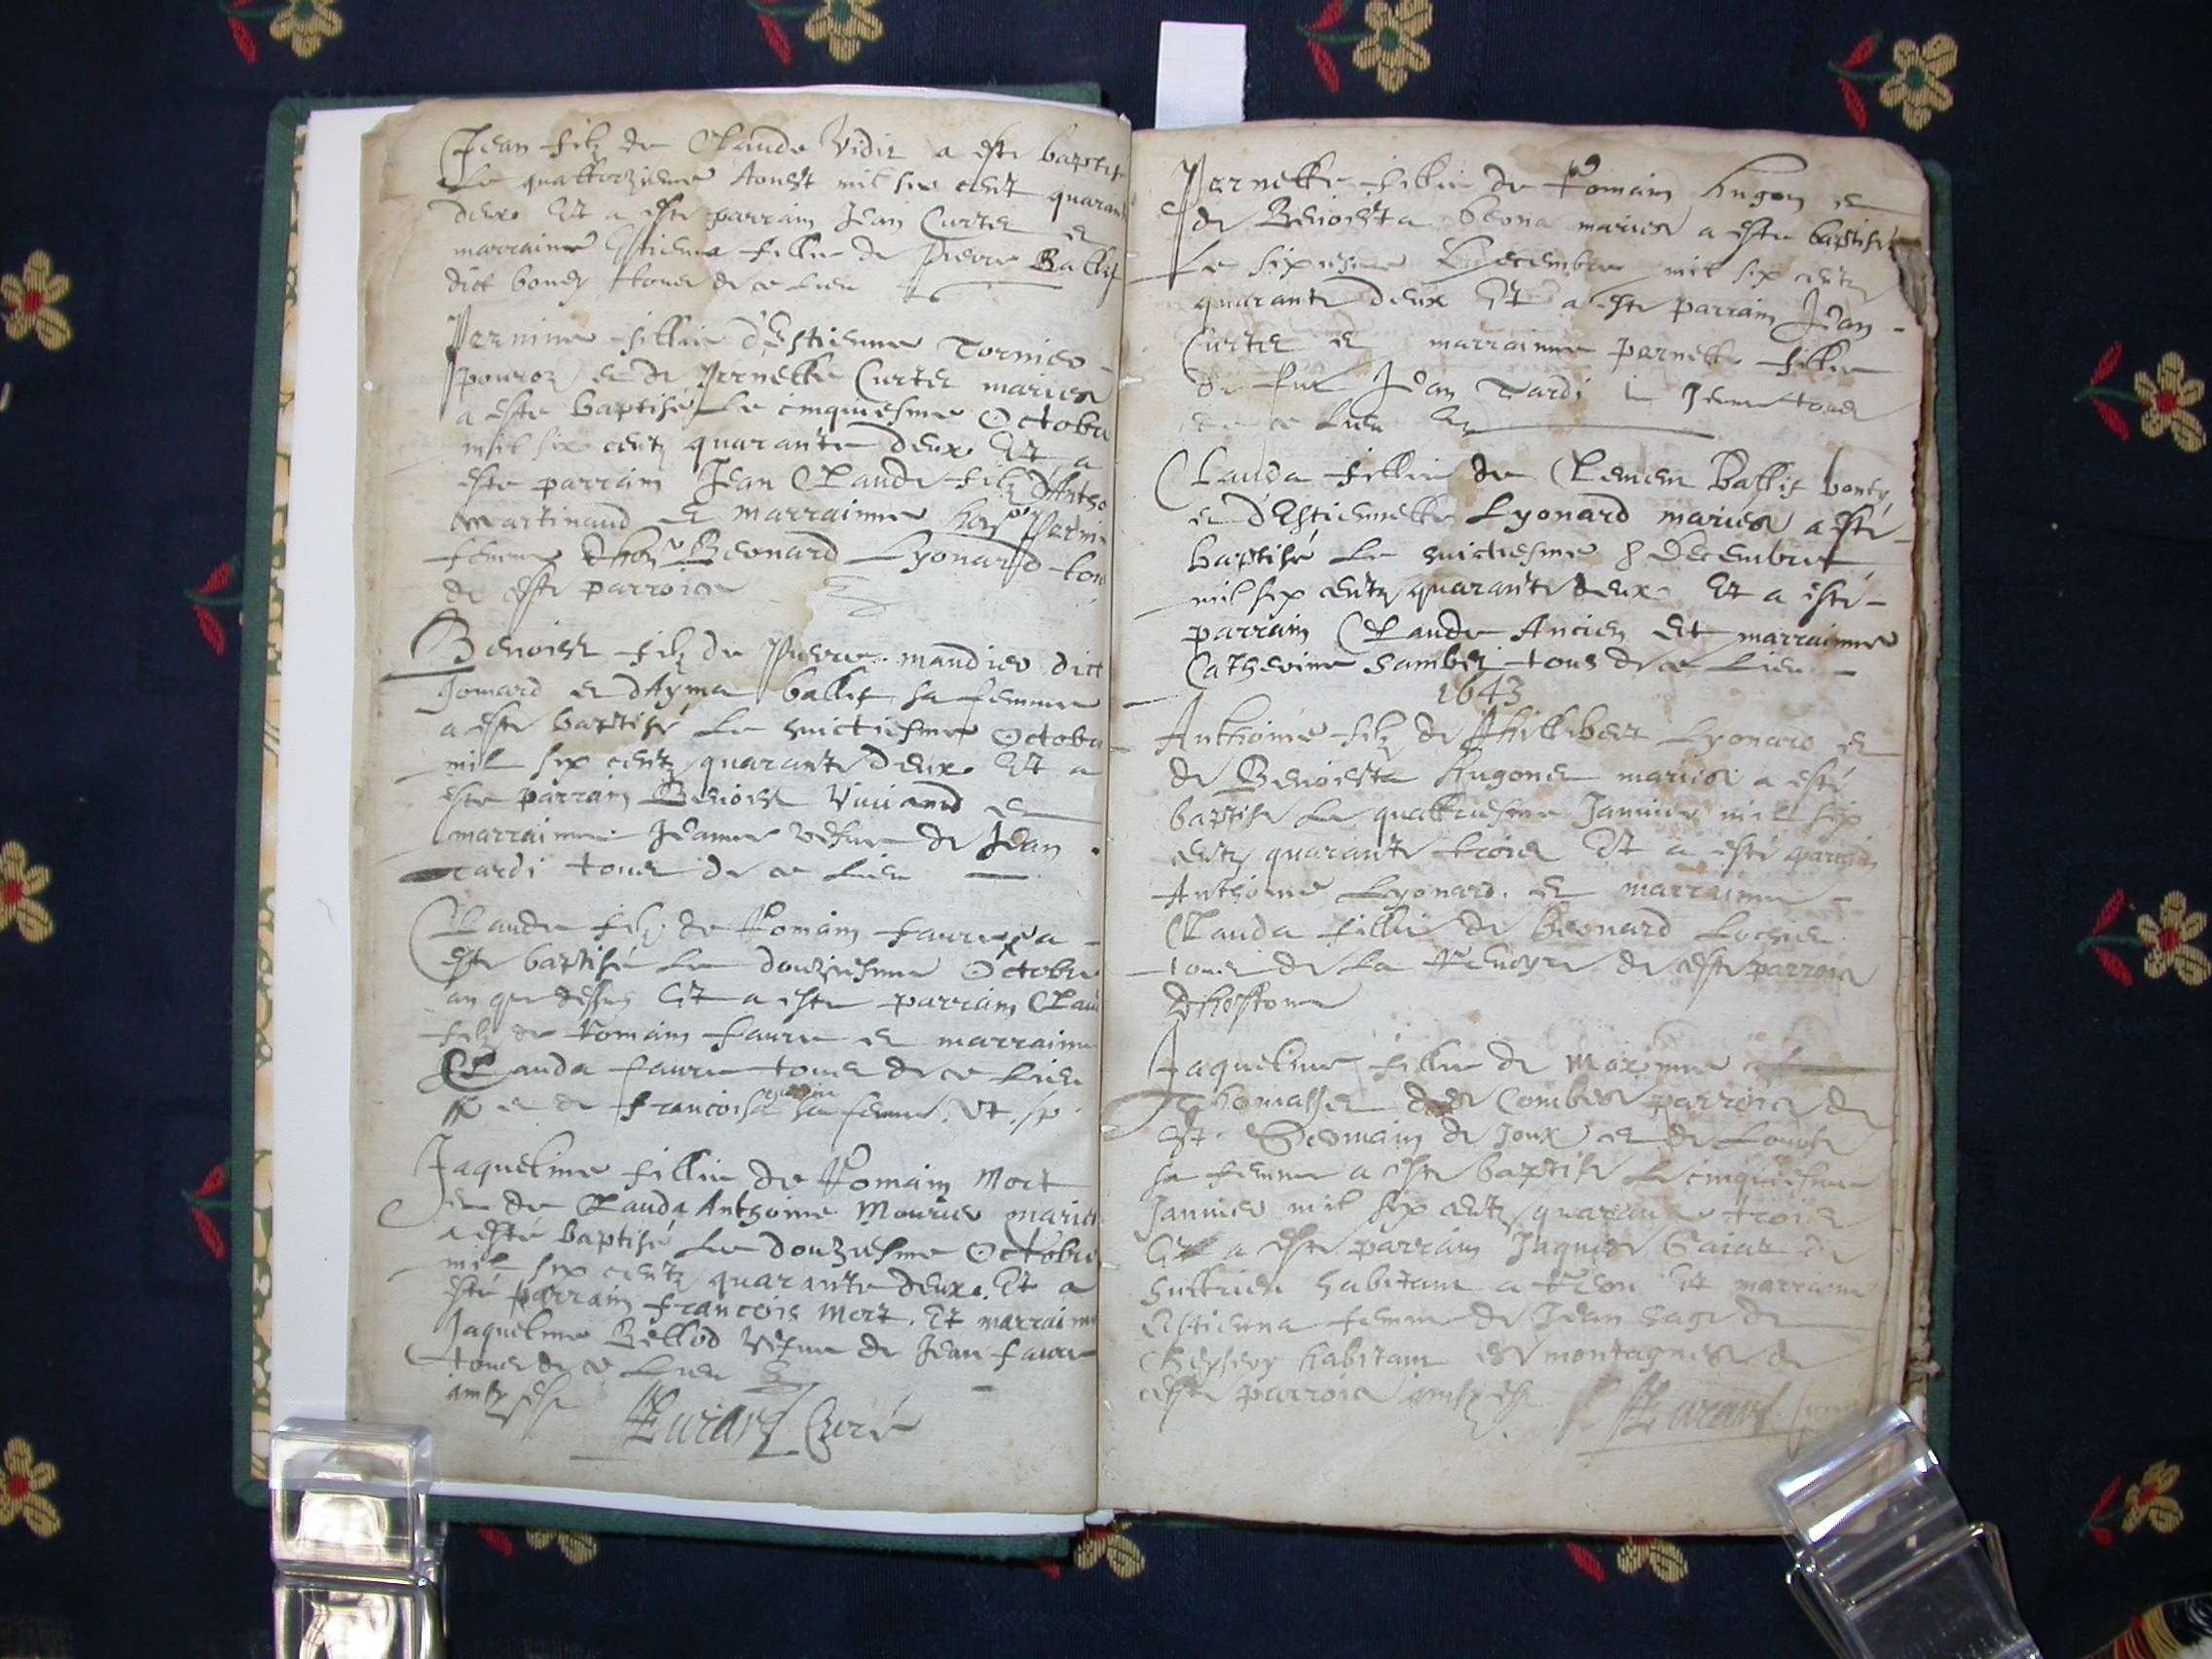 Jean filz de Claude Vidit a este baptise
Le quattorzieme Aoust mil six cent quaran
deux Et a este parrain Jean Curtet et
marraine Estienna fillie de Pierre Ballif
dict bonez tous de ce Lieu
Pernine fillie d'Estienne Tornier
pouroz et de Pernette Curtet maries
a este baptise Le cinquiesme Octobre
mil six centz quarante deux Et a
este parrain Jean Claude filz d'Antho
Martinaud et marrainne hon Perni
femme d'hon Bernard Lyonard tous
de ceste parroice
Benoist filz de Pierre mandier dict
Jomard et d'Ayma ballif sa femme
a este baptisé Le huictiesme Octobre
mil six centz quarante deux Et a
este parrain Benoist Vuiand et
marrainne Jeanne vefve de Jean
Tardi tous de ce Lieu
Claude filz de Romain faure a
este baptisé Le douziesme Octobre
an que dessus Et a este parrain Clau
filz de Romain faure et marrainne
Clauda faure tous de ce Lieu
et de francoise sa femme. Vt. sp.
Jaqueline fillie de Romain Mort
et de Clauda Anthoine Mourier maries
a esté baptisé Le douziesme Octobre
mil six centz quarante deux. Et a
esté parrain francois Mort. Et marrainne
Jaqueline Bellod vefve de Jean faure
tous de ce Lieu
ainsy est
Curé
Pernette fillie de Romain hugon et
de Benoista maries a este baptisé
Le sixiesme Decembre mil six centz
quarante deux Et a este parrain Jean
Curtet et marrainne pernette fillie
de fut Jean Tardi tous
de ce Lieu
Clauda fillie de Clement Ballif bonez
et d'Estiennette Lyonard maries a esté
baptisé Le huictiesme 8 Decembre
mil six centz quarante deux Et a este
parrain Claude Ancien Et marrainne
Catherine Sambet tous de ce Lieu
1643
Anthoine filz de Phillibert Lyonard et
de Benoista hugonet maries a esté
baptisé Le quattriesme Janvier mil six
centz quarante trois Et a esté parrain
Anthoine Lyonard. et marrainne
Clauda fillie de bernard
tous de La de ceste parroice
Jaqueline fillie de Maxime
Thomasset des Combes parroice de
St. Germain de Joux et de Louise
sa femme a este baptisé Le cinquiesme
Janvier mil six centz quarante trois
Et a este parrain Jaques de
habitant a Et marrainne
Estienna femme de Jean sage de
habitant es montagnes de
ceste parroice ainsy est